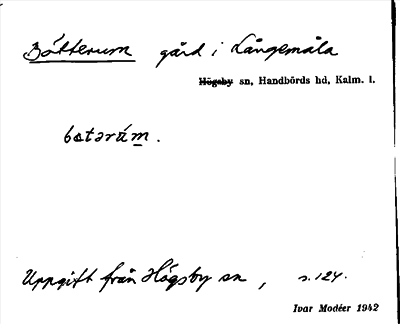 Bötterum gård i Långemåla
Högsby sn, Handbörds hd, Kalm. l.
bɵtərúm.
Uppgift från Högsby sn, s. 124.
Ivar Modéer 1942